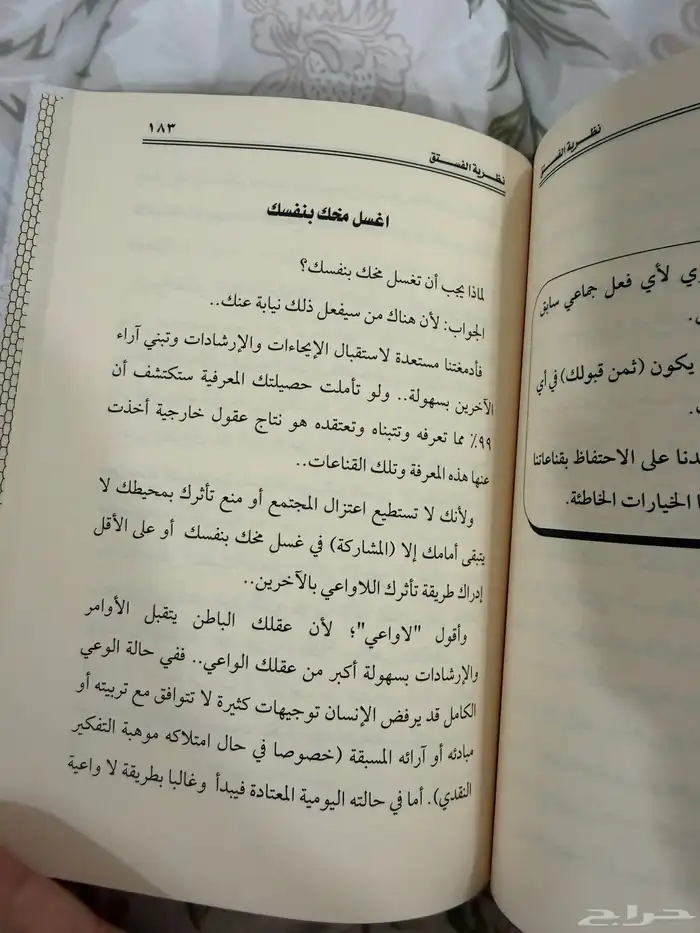 ١٨٣
نظرية الفستق
اغسل مخك بنفسك
لماذا يجب أن تغسل مخك بنفسك؟
الجواب: لأن هناك من سيفعل ذلك نيابة عنك..
فأدمغتنا مستعدة لاستقبال الإيحاءات والإرشادات وتبني آراء
الآخرين بسهولة.. ولو تأملت حصيلتك المعرفية ستكتشف أن
٩٩٪ مما تعرفه وتتبناه وتعتقده هو نتاج عقول خارجية أخذت
عنها هذه المعرفة وتلك القناعات..
ولأنك لا تستطيع اعتزال المجتمع أو منع تأثرك بمحيطك لا
يتبقى أمامك إلا (المشاركة) في غسل مخك بنفسك أو على الأقل
إدراك طريقة تأثرك اللاواعي بالآخرين..
وأقول "لاواعي"؛ لأن عقلك الباطن يتقبل الأوامر
والإرشادات بسهولة أكبر من عقلك الواعي.. ففي حالة الوعي
الكامل قد يرفض الإنسان توجيهات كثيرة لا تتوافق مع تربيته أو
مبادئه أو آرائه المسبقة (خصوصا في حال امتلاكه موهبة التفكير
النقدي). أما في حالته اليومية المعتادة فيبدأ وغالبا بطريقة لا واعية
نظرية الفستق
لأي فعل جماعي سابق
يكون (ثمن قبولك) في أي
على الاحتفاظ بقناعاتنا
الخيارات الخاطئة.
حراج